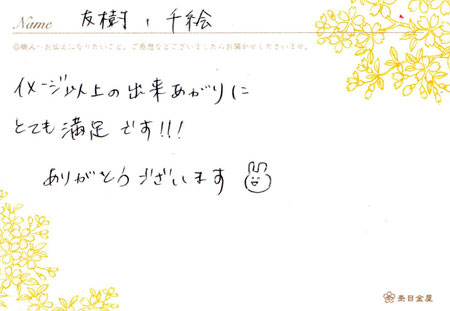 Name 友樹 , 千絵
◎職人へお伝えになりたいこと、ご感想などございましたらお聞かせくださいませ。
イメージ以上の出来あがりに
とても満足です!!!
ありがとうございます
杢目金屋